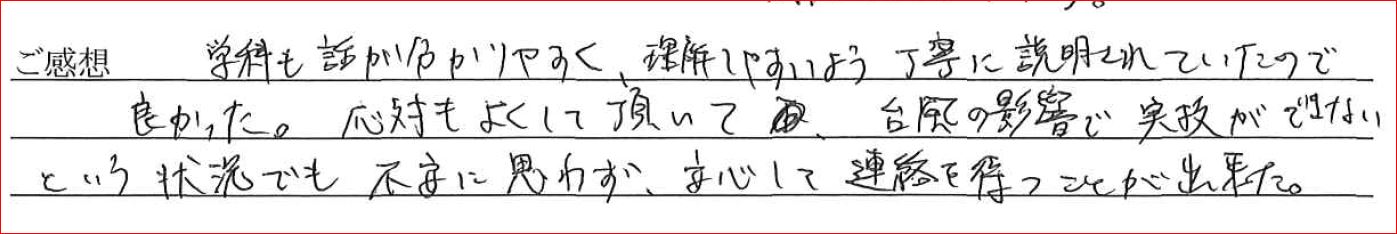 ご感想 学科も話が分かりやすく、理解しやすいよう丁寧に説明されていたので
良かった。応対もよくして頂いて、台風の影響で実技ができない
という状況でも不安に思わず、安心して連絡を待つことが出来た。